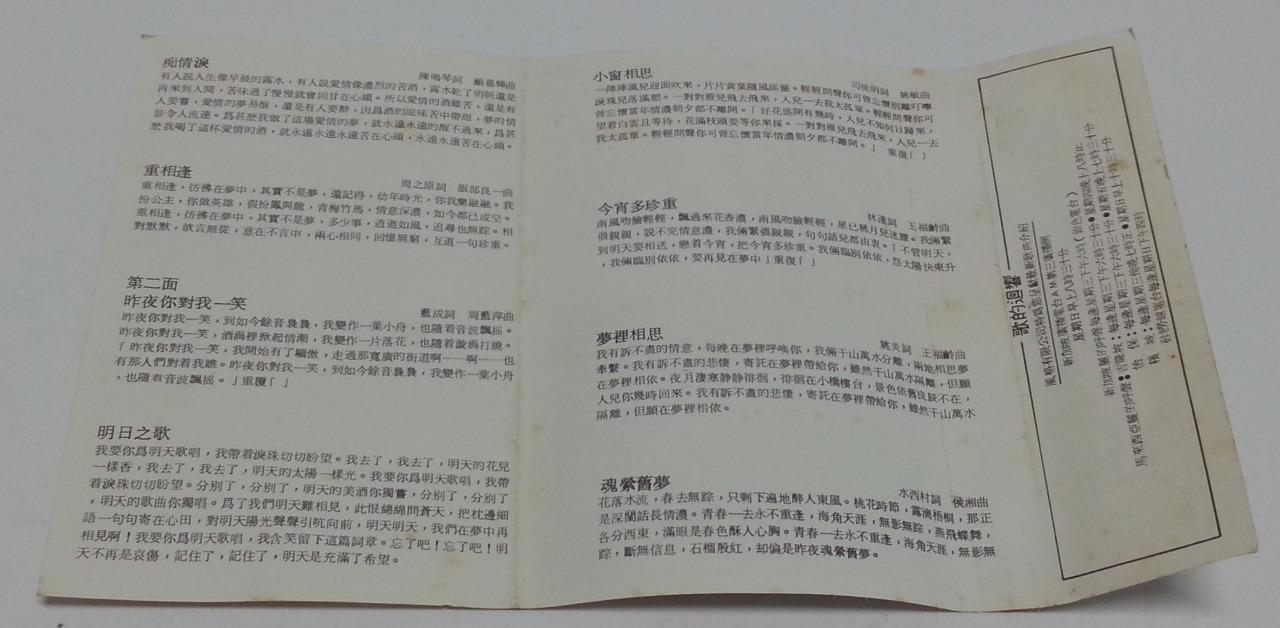 痴情淚
陳鳴琴詞 顧嘉輝曲
有人説人生像早晨的露水，有人説愛情像濃烈的苦酒，露水乾了明朝還是
再來到人間，苦味過了慢慢就會回甘在心頭。所以愛情的酒雖苦，還是有
人要嘗，愛情的夢易醒，還是有人要醉，因爲酒的滋味苦中帶甜，夢的情
景令人流連。爲甚麽我做了這塲愛情的夢，就永遠永遠的醒不過來，爲甚
麽我喝了這杯愛情的酒，就永遠永遠永遠苦在心頭，永遠永遠苦在心頭。
重相逢
周之原詞 服部良一曲
重相逢，彷彿在夢中，其實不是夢，還記得，幼年時光，你我樂融融。我
扮公主，你做英雄，假扮鳳與龍，青梅竹馬，情意深濃，如今都已成空。
重相逢，彷彿在夢中，其實不是夢，多少事，逍逝如風，追尋也無踪。相
對默默，欲言無從，意在不言中，兩心相同，回憶無窮，互道一句珍重。
第二面
昨夜你對我一笑
藍成詞 周藍萍曲
昨夜你對我一笑，到如今餘音裊裊，我變作一葉小舟，也隨着音波飄摇。
昨夜你對我一笑，酒渦裡掀起情潮，我變作一片落花，也隨着漩渦打繞。
「昨夜你對我一笑，我開始有了驕傲，走過那寬廣的街道啊⋯⋯啊⋯⋯也
有那人們對着我瞧。昨夜你對我一笑，到如今餘音裊裊，我變作一葉小舟
，也隨着音波飄摇。」重覆「」
明日之歌
我要你爲明天歌唱，我帶着淚珠切切盼望。我去了，我去了，明天的花兒
一樣香，我去了，我去了，明天的太陽一樣光。我要你爲明天歌唱，我帶
着淚珠切切盼望。分别了，分别了，明天的美酒你獨嘗，分别了，分别了
，明天的歌曲你獨唱。爲了我們明天難相見，此恨綿綿問蒼天，把枕邊細
語一句句寄在心田，對明天陽光聲聲引吭向前，明天明天，我們在夢中再
相見啊！我要你爲明天歌唱，我含笑留下這篇詞章。忘了吧！忘了吧！明
天不再是哀傷，記住了，記住了，明天是充滿了希望。
小窗相思
司徒明詞 姚敏曲
一陣陣風兒迎面吹來，片片黃葉隨風摇擺。輕輕問聲你可曾忘懷别離叮嚀
淚珠兒落滿腮。一對對雁兒飛去飛來，人兒一去我太孤單。輕輕問聲你可
曾忘懷當年情濃朝夕都不離開。「好花盛開有幾時，人兒不知何日歸來，
望着白雲且等待，花滿枝頭要等你來採。一對對雁兒飛去飛來，人兒一去
我太孤單。輕輕問聲你可曾忘懷當年情濃朝夕都不離開。」重復「」
今宵多珍重
林達詞 王福齡曲
南風吻臉輕輕，飄過來花香濃，南風吻臉輕輕，星已稀月兒迷朦。我倆緊
偎親親，說不完情意濃，我倆緊偎親親，句句話兒都由衷。「不管明天，
到明天要相送，戀着今宵，把今宵多珍重。我倆臨别依依，怨太陽快東升
，我倆臨别依依，要再見在夢中」重復「」
夢裡相思
姚炎詞 王福齡曲
我有訴不盡的情意，每晚在夢裡呼喚你，我倆千山萬水分離，兩地相思夢
牽繫。我有訴不盡的悲悽，寄託在夢裡帶給你，雖然千山萬水隔離，但願
在夢裡相依。夜月淒寒静静徘徊，徘徊在小橋樓台，景色依舊良辰不在，
人兒你幾時回來。我有訴不盡的悲悽，寄託在夢裡帶給你，雖然千山萬水
隔離，但願在夢裡相依。
魂縈舊夢
水西村詞 侯湘曲
花落水流，春去無踪，只剩下遍地醉人東風。桃花時節，露滴梧桐，那正
是深閨話長情濃。青春一去永不重逢，海角天涯，無影無踪，燕飛蝶舞，
各分西東，滿眼是春色酥人心胸。青春一去永不重逢，海角天涯，無影無
踪，斷無信息，石榴殷紅，却偏是昨夜魂縈舊夢。
歌的迴響
風格有限公司特爲您呈獻最新歌曲介紹
星期日早上八時三十分